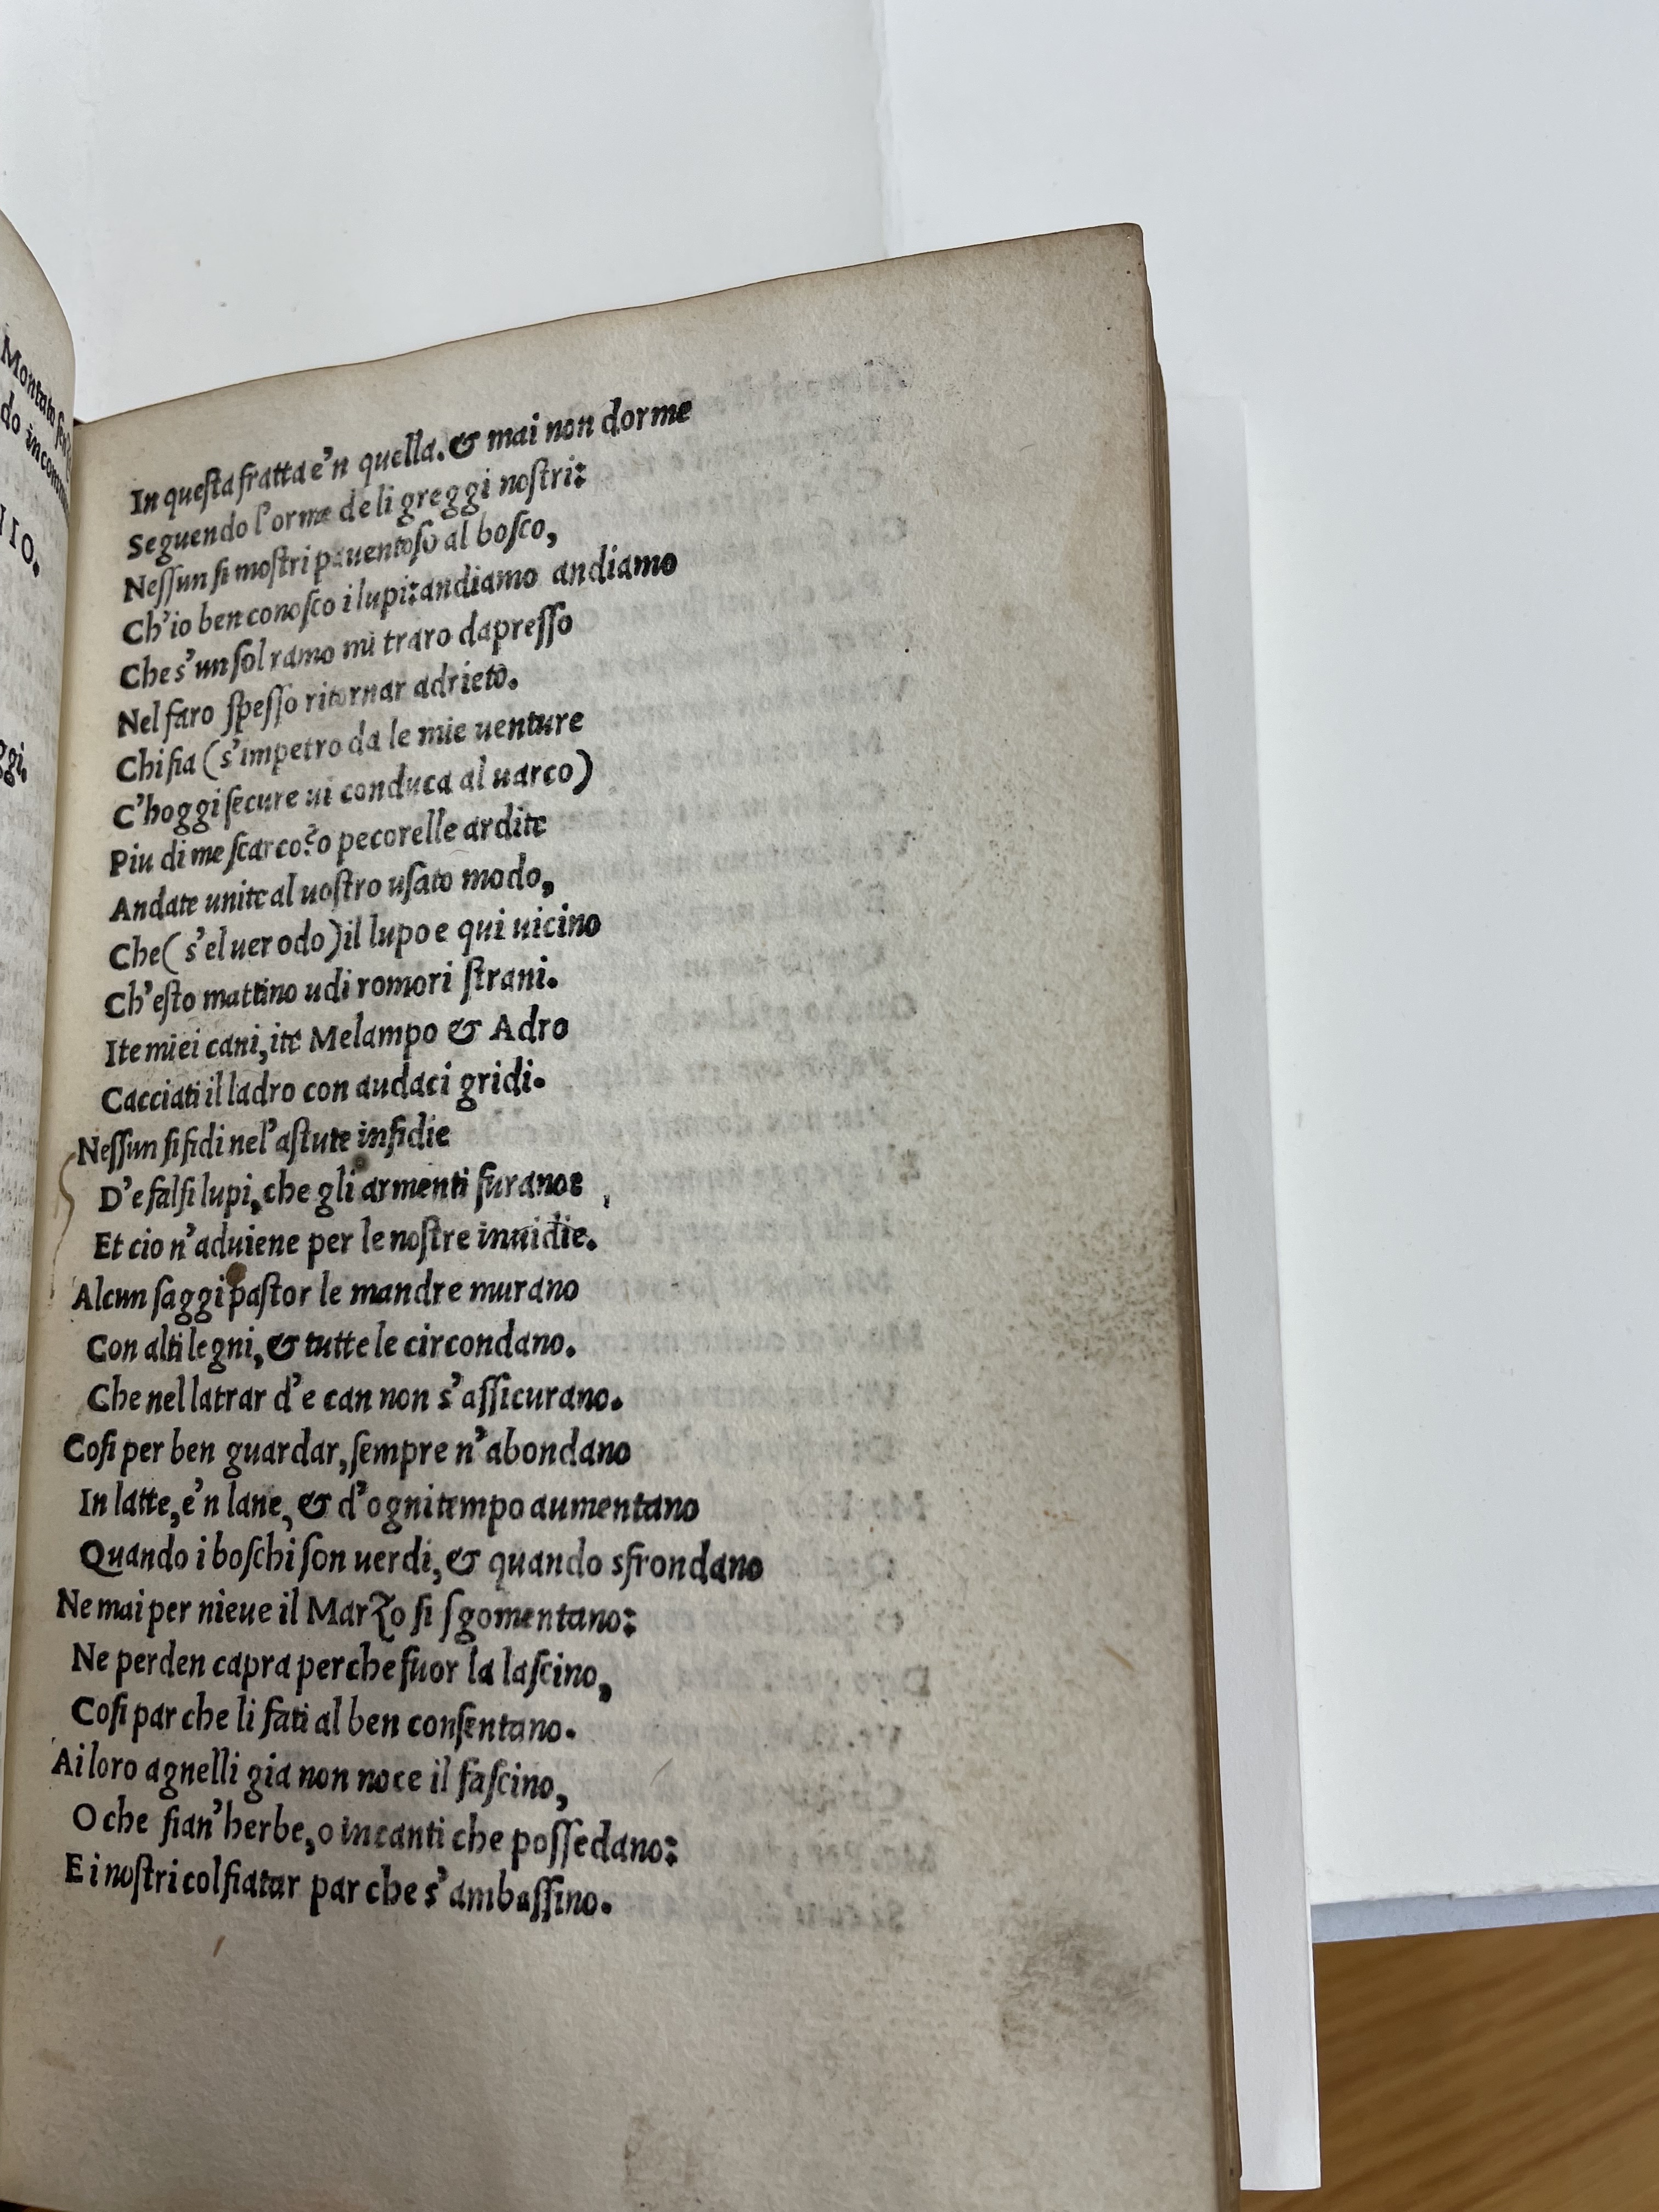 Montato
do in comin
IIO.
ggi.
In queſta fratta e'n quella. & mai non dorme
Seguendo l'orme de li greggi noſtri:
Neſſun ſi moſtri pauentoſo al boſco,
Ch'io ben conoſco i lupi: andiamo andiamo
Che s'un ſol ramo mi traro dapreſſo
Nel faro ſpeſſo ritornar adrieto.
Chi fia (s'impetro da le mie uenture
C'hoggi ſecure ui conduca al uarco)
Piu di me ſcarco? o pecorelle ardite
Andate unite al uoſtro uſato modo,
Che (s'el uer odo) il lupo e qui uicino
Ch'eſto mattino udi romori ſtrani.
Ite miei cani, ite Melampo & Adro
Cacciati il ladro con audaci gridi.
Neſſun ſi fidi nel'aſtute inſidie
D'e falſi lupi, che gli armenti furano:
Et cio n'aduiene per le noſtre inuidie.
Alcun ſaggi paſtor le mandre murano
Con alti legni, & tutte le circondano.
Che nel latrar d'e can non s'aſſicurano.
Coſi per ben guardar, ſempre n'abondano
In latte, e'n lane, & d'ogni tempo aumentano
Quando i boſchi ſon uerdi, & quando sfrondano
Ne mai per nieue il Marzo ſi ſgomentano:
Ne perden capra perche fuor la laſcino,
Coſi par che li fati al ben conſentano.
Ai loro agnelli gia non noce il faſcino,
O che ſian'herbe, o incanti che poſſedano:
E i noſtri col fiatar par che s'ambaſſino.